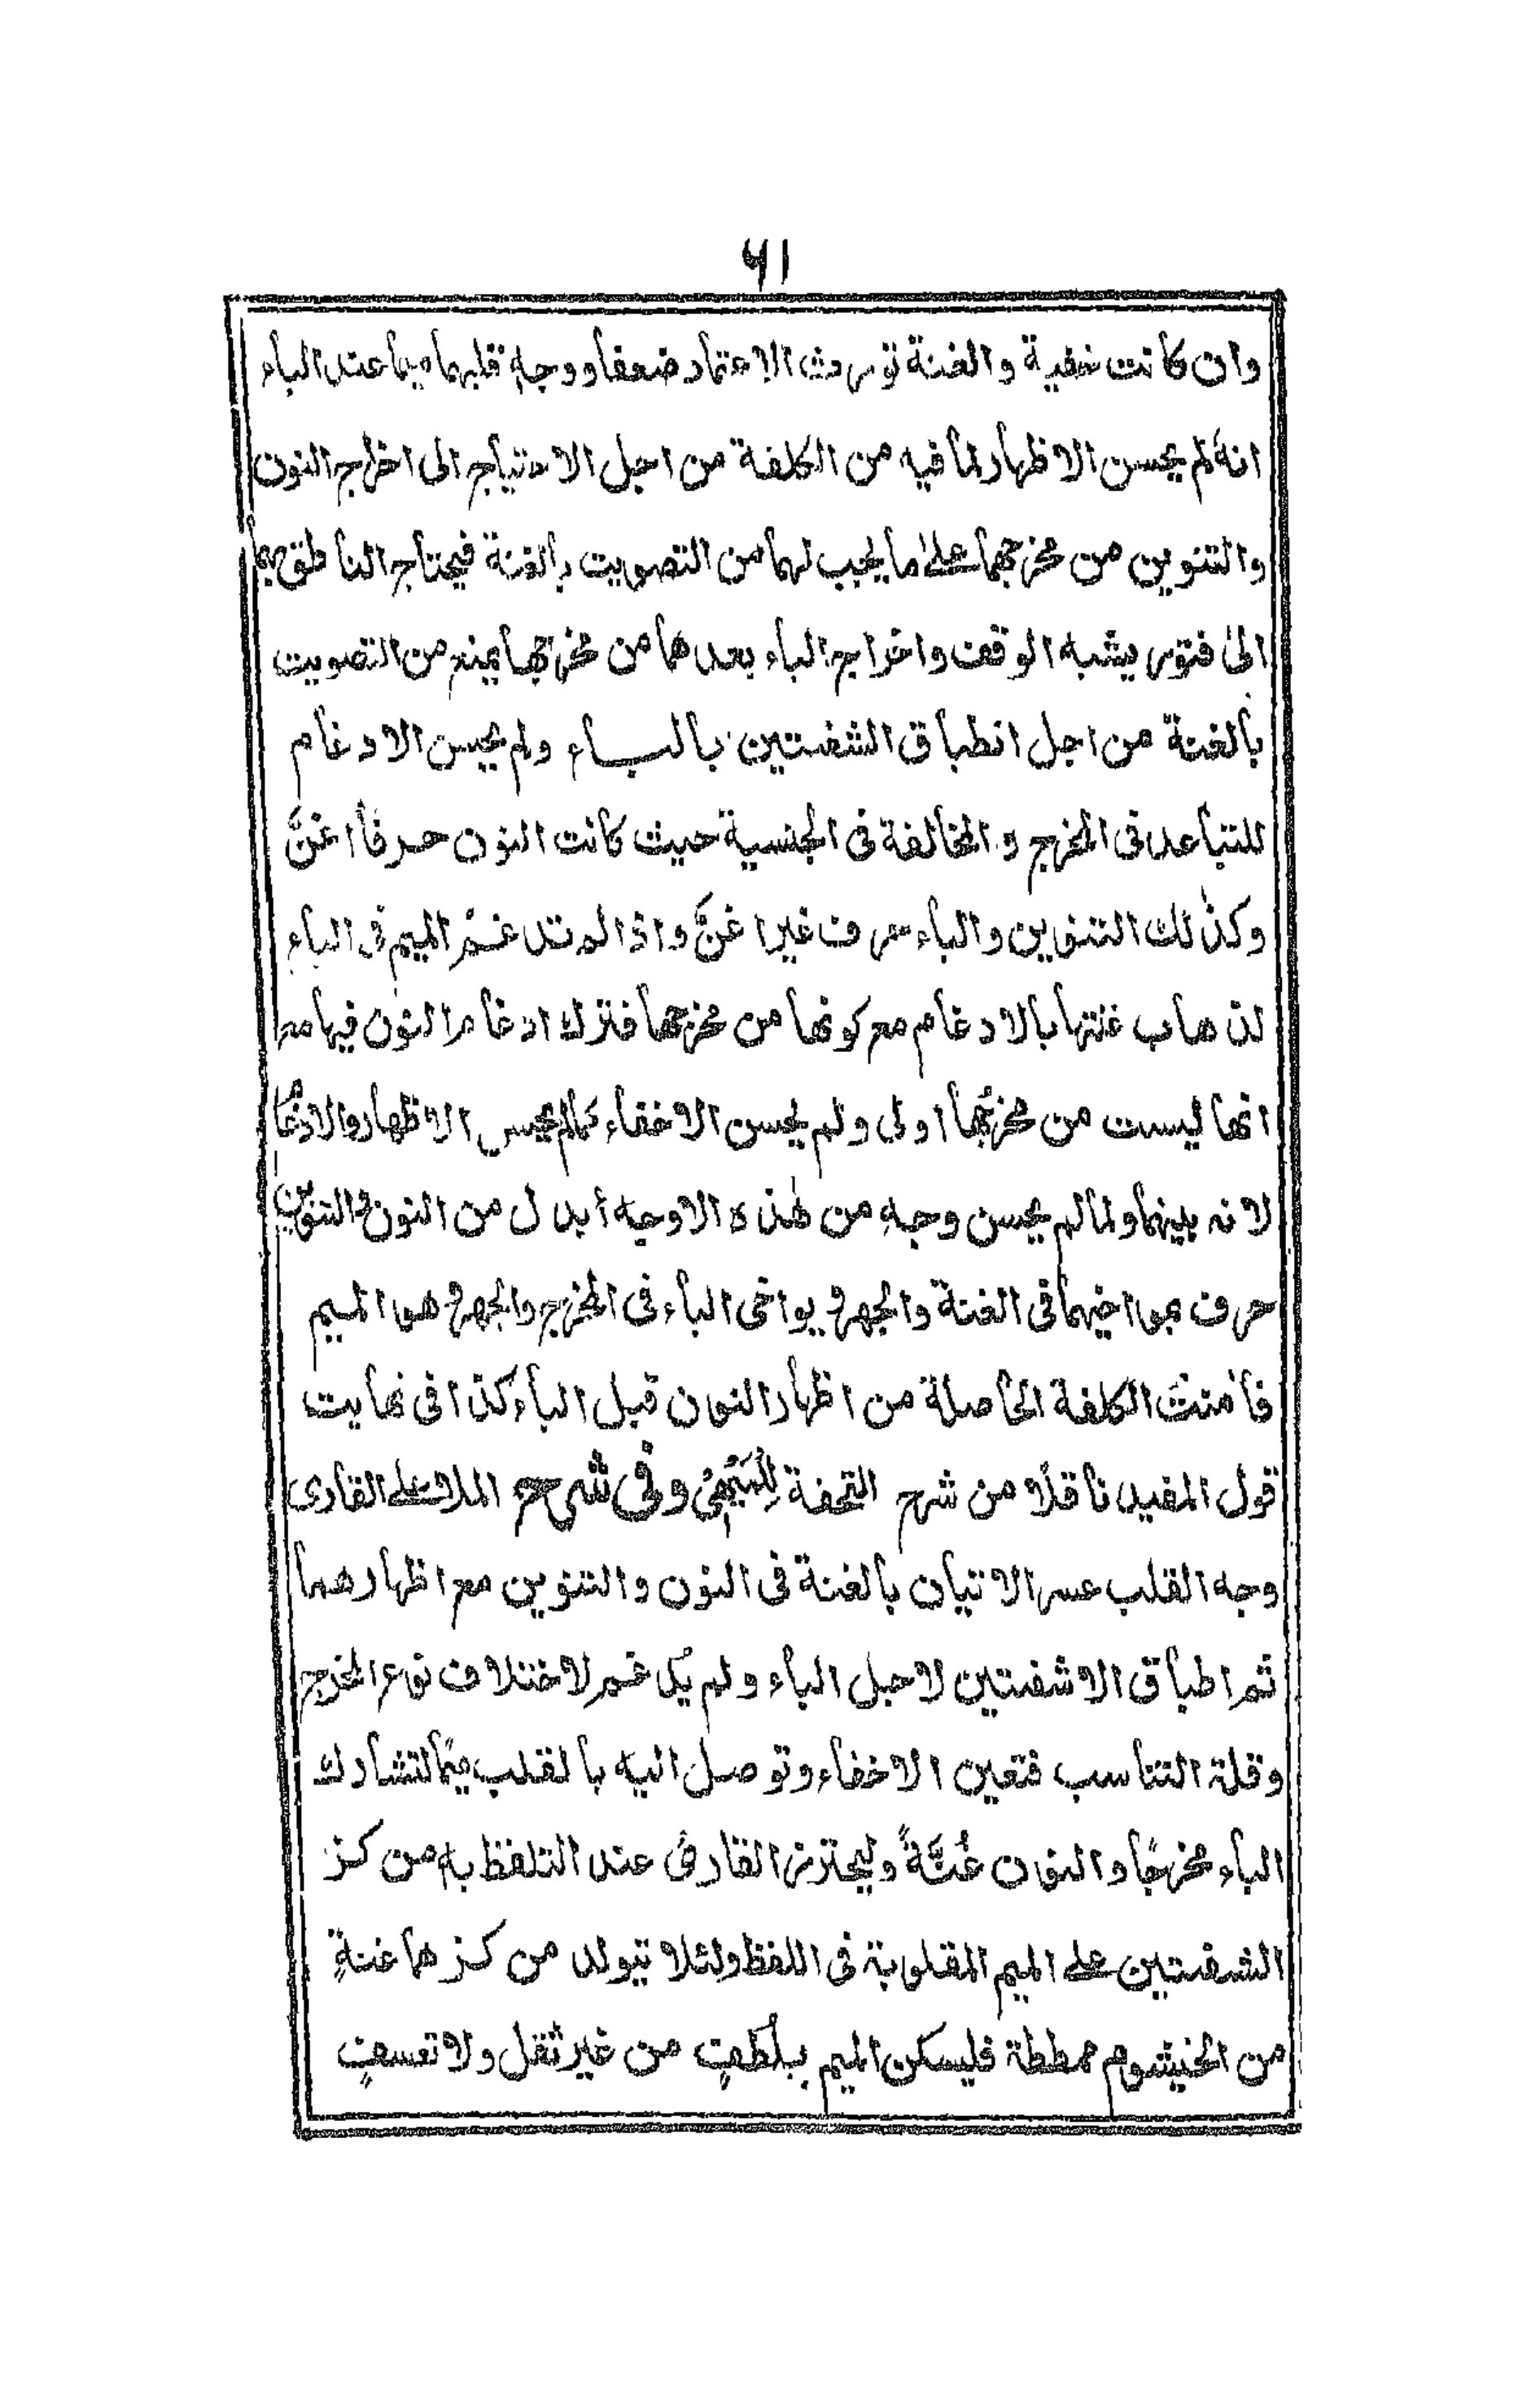 ۶۱
وان كانت خفية والغنة تورث الاعتماد ضعفا ووجه قلبهما ميما عند الباء
انه لم يحسن الاظهار لما فيه من الكلفة من اجل الاحتياج الى اخراج النون
والتنوين من مخرجهما على ما يجب لهما من التصويت بالغنة فيحتاج الناطق بهما
الىٰ فتور يشبه الوقف واخراج الباء بعدهما من مخرجها يمنع من التصويت
بالغنة من اجل انطباق الشفتين بالباء ولم يحسن الادغام
للتباعد فى المخرج والمخالفة فى الجنسية حيث كانت النون حرفا اغنَّ
وكذٰلك التنوين والباء حرف غير اغنَّ واذا لم تدغم الميم فى الباء
لذهاب غنتها بالادغام مع كونها من مخرجها فترك ادغام النون فيها مع
انها ليست من مخرجها اولى ولم يحسن الاخفاء كما لم يحسن الاظهار والادغام
لانه بينهما ولما لم يحسن وجه من هٰذه الاوجه أبدل من النون والتنوين
حرف يواخيهما فى الغنة والجهر و يواخى الباء فى المخرج والجهر وهو الميم
فأمنت الكلفة الحاصلة من اظهار النون قبل الباء كذا فى نهايت
قول المفيد ناقلًا من شرح التحفة للميهى وفى شرح الملا على القارى
وجه القلب عسر الاتيان بالغنة فى النون والتنوين مع اظهارهما
ثم اطباق الاشفتين لاجل الباء ولم يدغم لاختلاف نوع المخرج
وقلة التناسب فتعين الاخفاء وتوصل اليه بالقلب ميمًا لتشارك
الباء مخرجًا والنون غُنَّةً وليحترز القارئ عند التلفظ به من كز
الشفتين على الميم المقلوبة فى اللفظ ولئلا يتولد من كزهما غنةٍ
من الخيشوم ممططة فليسكن الميم بلطف من غير ثقل ولا تعسف